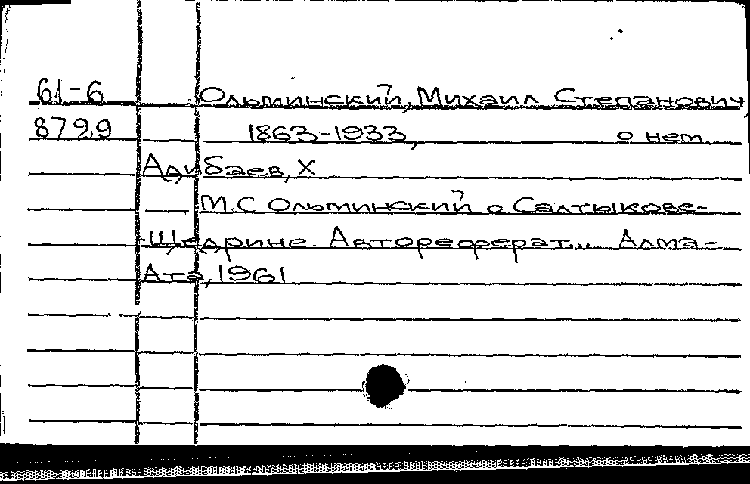 61-6 Ольминский, Михаил Степанович,
8799 1863-1933, о нем.
Адибаев, Х
М.С Ольминский о Салтыкове-
-Щедрине. Автореферат... Алма-
Ата, 1961